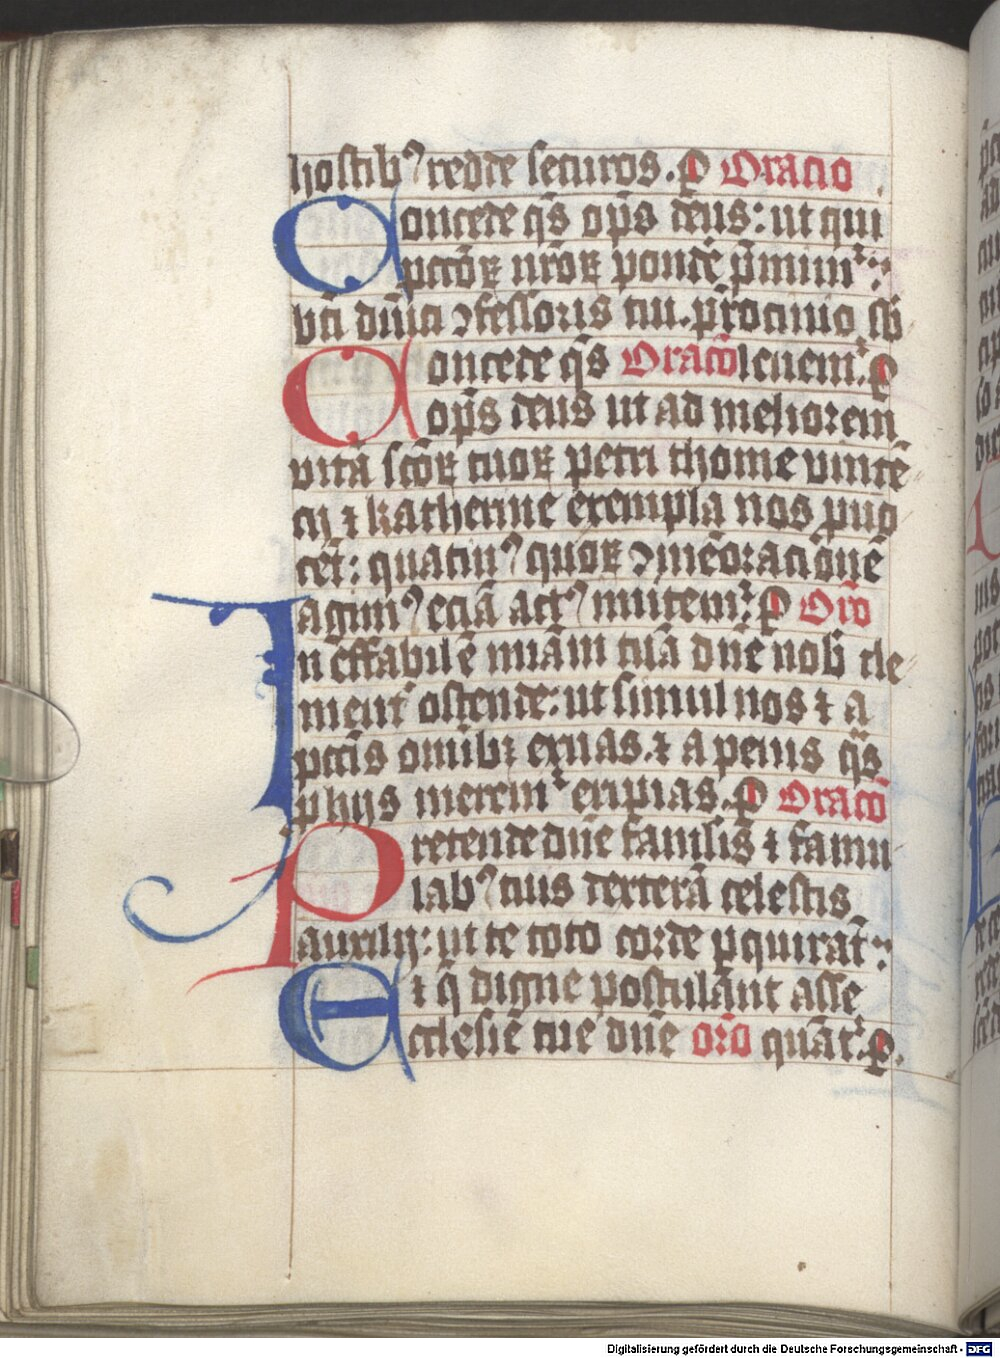 hostib⁹ redde securos. ꝑ Oracio
Concede q̄s op̄s deus: ut qui
pctōꝝ nr̄oꝝ pondē p̄mimᷣ:
bt̄i dn̄ici ꝯfessoris tui. pr̄ocinio sb̄
Concede q̄s Oracō leuemᷣ. ꝑ
op̄s deus ut ad meliorem
vitā sc̄oꝝ tuoꝝ petri thome vincē
cij ⁊ katherine exempla nos ꝓuo
cēt: quatin⁹ quoꝝ ꝯmēoracōnē
agim⁹ eciā act⁹ mitemᷣ: ꝑ Orō
In effabilē miām tuā dn̄e nob̄ cle
mentᷣ ostende: ut simul nos ⁊ a
pctīs omībꝫ exuas. ⁊ a penis q̄s
ꝓ hijs meremᷣ eripias. ꝑ Oracō
Pretende dn̄e famlis ⁊ famu
lab⁹ tuis dexterā celestis
auxilij: ut te toto corde ꝑquirāt:
Et q̄ digne postulant asse
Ecclesie tue dn̄e orō quātᷣ. ꝑ.
Digitalisierung gefördert durch die Deutsche Forschungsgemeinschaft - DFG